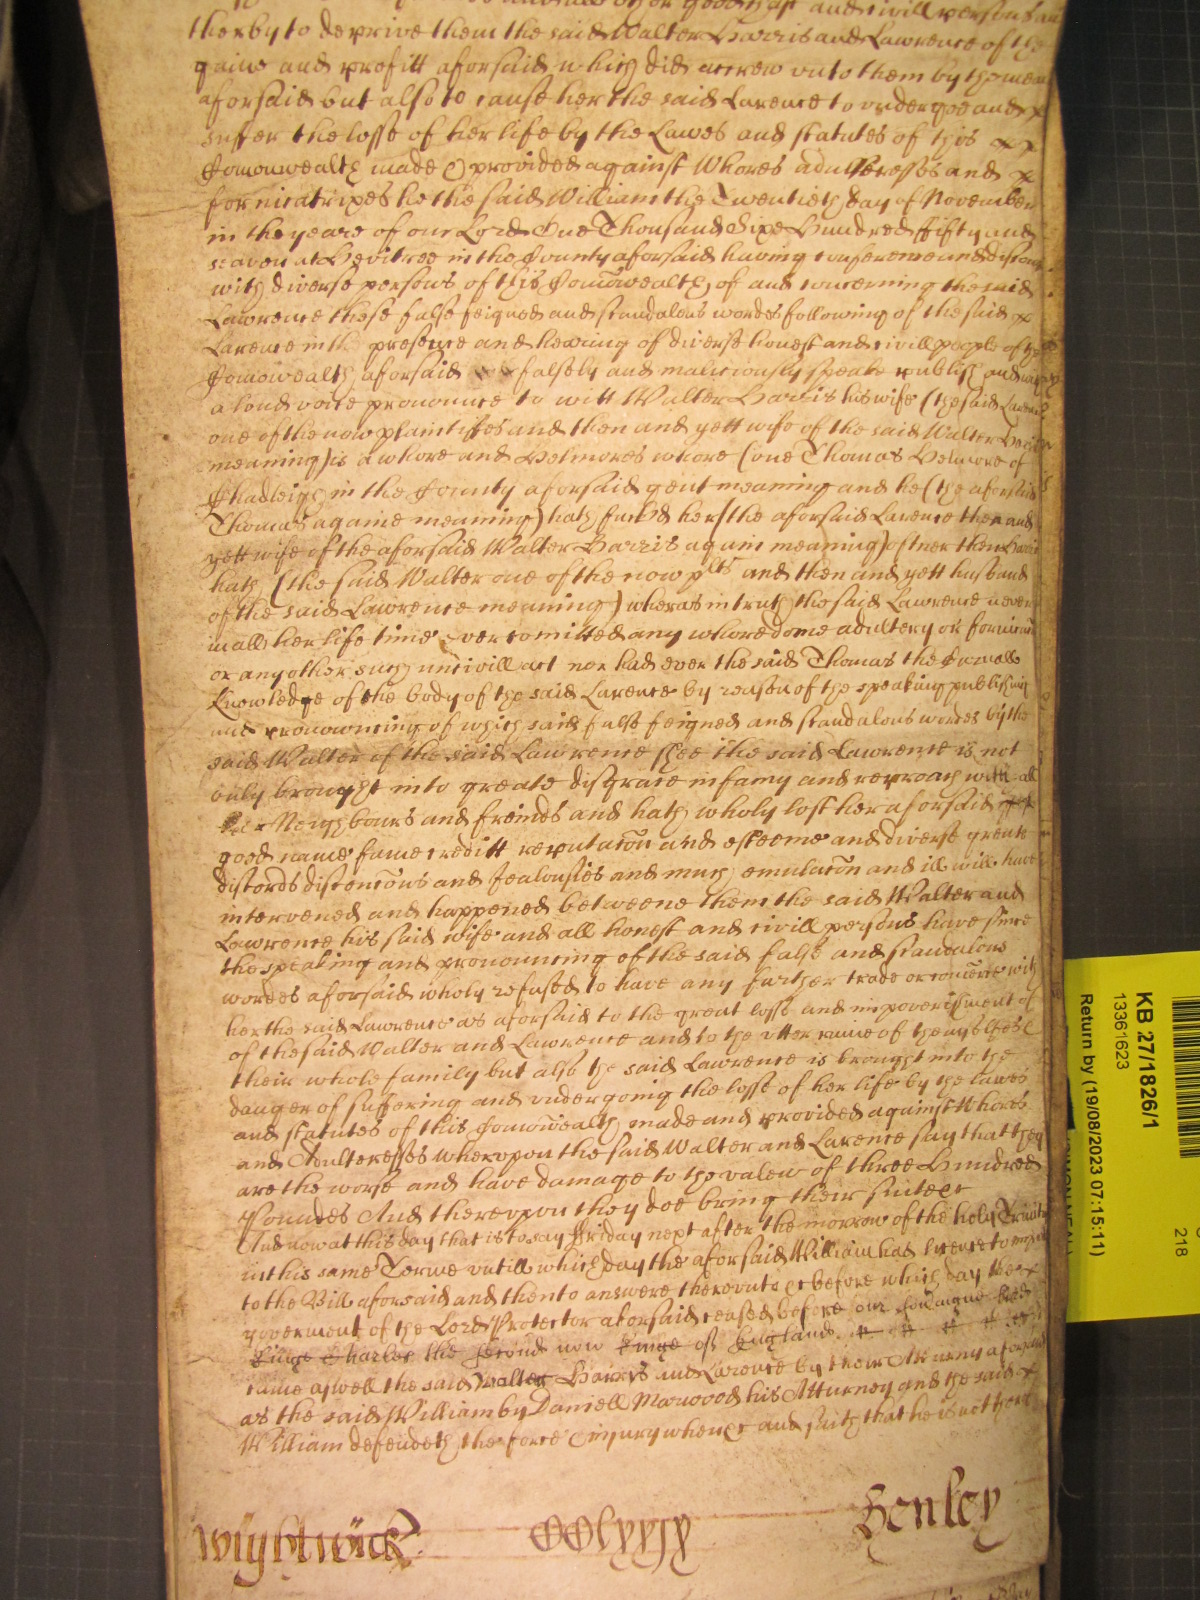 and civill persons
therby to deprive them the said Walter Harris and Lawrence of the
gaine and profitt aforsaid which did accrew vnto them by the meanes
aforsaid but also to cause her the said Larence to vndergoe and
suffer the losse of her life by the Lawes and statutes of this
Comonwealth made & provided against Whores adulteresses and
fornicatrixes he the said William the Twentieth day of November
in the yeare of our Lord One Thousand Sixe Hundred ffifty and
seaven at Hevitree in the County aforsaid having conference and discourse
with diverse persons of this Comōwealth, of and concerning the said
Lawrence these false feigned and scandalous wordes following of the said
Larence in the presence and hearing of diverse honest and civill people of the
Comowealth aforsaid falsely and maliciously speake publish and with
a loud voice pronounce to witt Walter Harris his wife (the said Larence
one of the now plaintiffes and then and yett wife of the said Walter Harris
meaning) is a whore and Helmores whore (one Thomas Helmore of
Chadleigh in the County aforsaid gent meaning and he (the aforsaid
Thomas againe meaning) hath fuckd her (the aforsaid Larence then and
yett wife of the aforsaid Walter Harris again meaning) oftner then Harris
hath (the said Walter one of the now plts and then and yett husband
of the said Lawrence meaning) wheras in truth the said Lawrence never
in all her life time ever comitted any whoredome adultery or fornicacon
or any other such uncivill act nor had ever the said Thomas the Carnall
knowledge of the body of the said Larence by reason of the speaking publishing
and pronouncing of which said false feigned and scandalous wordes by the
said Walter of the said Lawrence shee the said Lawrence is not
only brought into greate disgrace infamy and reproach with all
her Neighbours and freinds and hath wholy lost her aforsaid
good name fame creditt reputacōn and esteeme and diverse greate
discords discencōns and Jealousies and much emulacōn and ill will have
intervened and happened betweene them the said Walter and
Lawrence his said wife and all honest and civill persons have since
the speaking and pronouncing of the said false and scandalous
wordes aforsaid wholy refused to have any further trade or comerce with
her the said Lawrence as aforsaid to the great losse and impoverishment of
of the said Walter and Lawrence and to the vtter ruine of themselves &
their whole family but also the said Lawrence is brought into the
danger of suffering and vndergoing the losse of her life by the lawes
and statutes of this Comōwealth made and provided against Whores
and Adulteresses wherupon the said Walter and Larence say that they
are the worse and have damage to the valew of three Hundred
Poundes And therevpon they doe bring their suite &c
And now at this day that is to say ffriday next after the morrow of the holy Trinity
in this same Terme vntill which day the aforsaid William had licence to imparle
to the Bill aforsaid and then to answere therevnto &c before which day the
goverment of the Lord Protector aforsaid ceased before our Soveraigne Lord
Kinge Charles the second now Kinge of England
came aswell the said Walter Harris and Larence by their Atturny aforsaid
as the said William by Daniell Morwood his Atturney and the said
William defendeth the force & injury when &c and saith that he is not therof
Wightwick
Henley
KB 27/1826/1
13361623
Return by (19/08/2023 07:15:11)
218